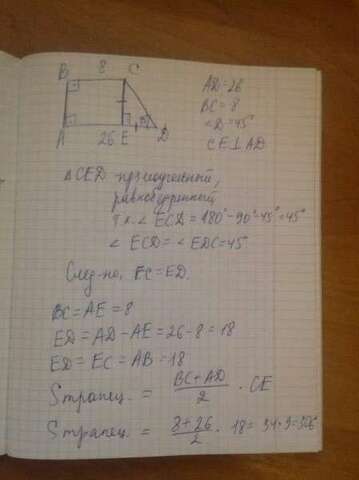 8
B C
A 26 E D
45°
AD=26
BC=8
∠D=45°
CE⊥AD
△CED-прямоугольный,
равнобедренный
т.к. ∠ECD=180°-90°-45°=45°
∠ECD=∠EDC=45°
След-но, EC=ED.
BC=AE=8
ED=AD-AE=26-8=18
ED=EC=AB=18
Sтрапец. = BC+AD/2 · CE
Sтрапец. = 8+26/2 · 18=34·9=306